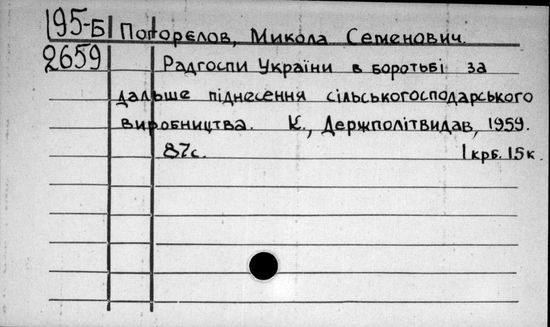 195-Б Погорєлов, Микола Семенович.
2659 Радгоспи України в боротьбі за
дальше піднесення сільськогосподарського
виробництва. К., Держполітвидав, 1959.
87с. 1 крб. 15к.